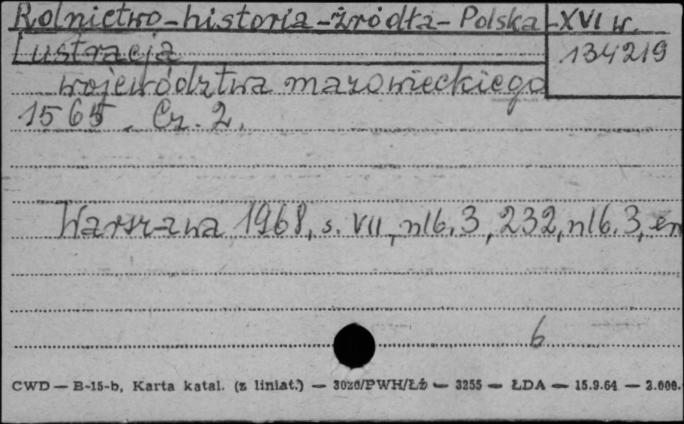 Rolnictwo-historia-źródła-Polska-XVI w.
Lustracja 134219
województwa mazowieckiego
1565. Cz. 2.
Warszawa 1968, s. VII, nlb. 3, 232, nlb. 3, err
6
CWD — B-15-b, Karta katal. (z liniat.) — 3020/PWH/Łż — 3255 — ŁDA — 15.9.64 — 2.000.